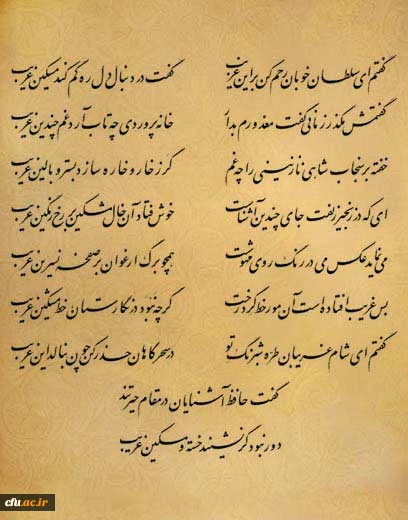 گفتم ای سلطان خوبان رحم کن بر این غریب گفت در دنبال دل ره گم کند مسکین غریب
گفتمش مگذر زمانی گفت معذورم بدار خانه پروردی چه تاب آرد غم چندین غریب
خفته بر سنجاب شاهی نازنینی را چه غم گر ز خار و خاره سازد بستر و بالین غریب
ای که در زنجیر زلفت جای چندین آشناست خوش فتاد آن خال مشکین بر رخ رنگین غریب
می نماید عکس می در رنگ روی مهوشت همچو برگ ارغوان بر صفحه نسرین غریب
بس غریب افتاده است آن مور خط گرد رخت گرچه نبود در نگارستان خط مشکین غریب
گفتم ای شام غریبان طره شبرنگ تو در سحرگاهان حذر کن چون بنالد این غریب
گفت حافظ آشنایان در مقام حیرتند
دور نبود گر نشیند خسته و مسکین غریب
cfu.ac.ir